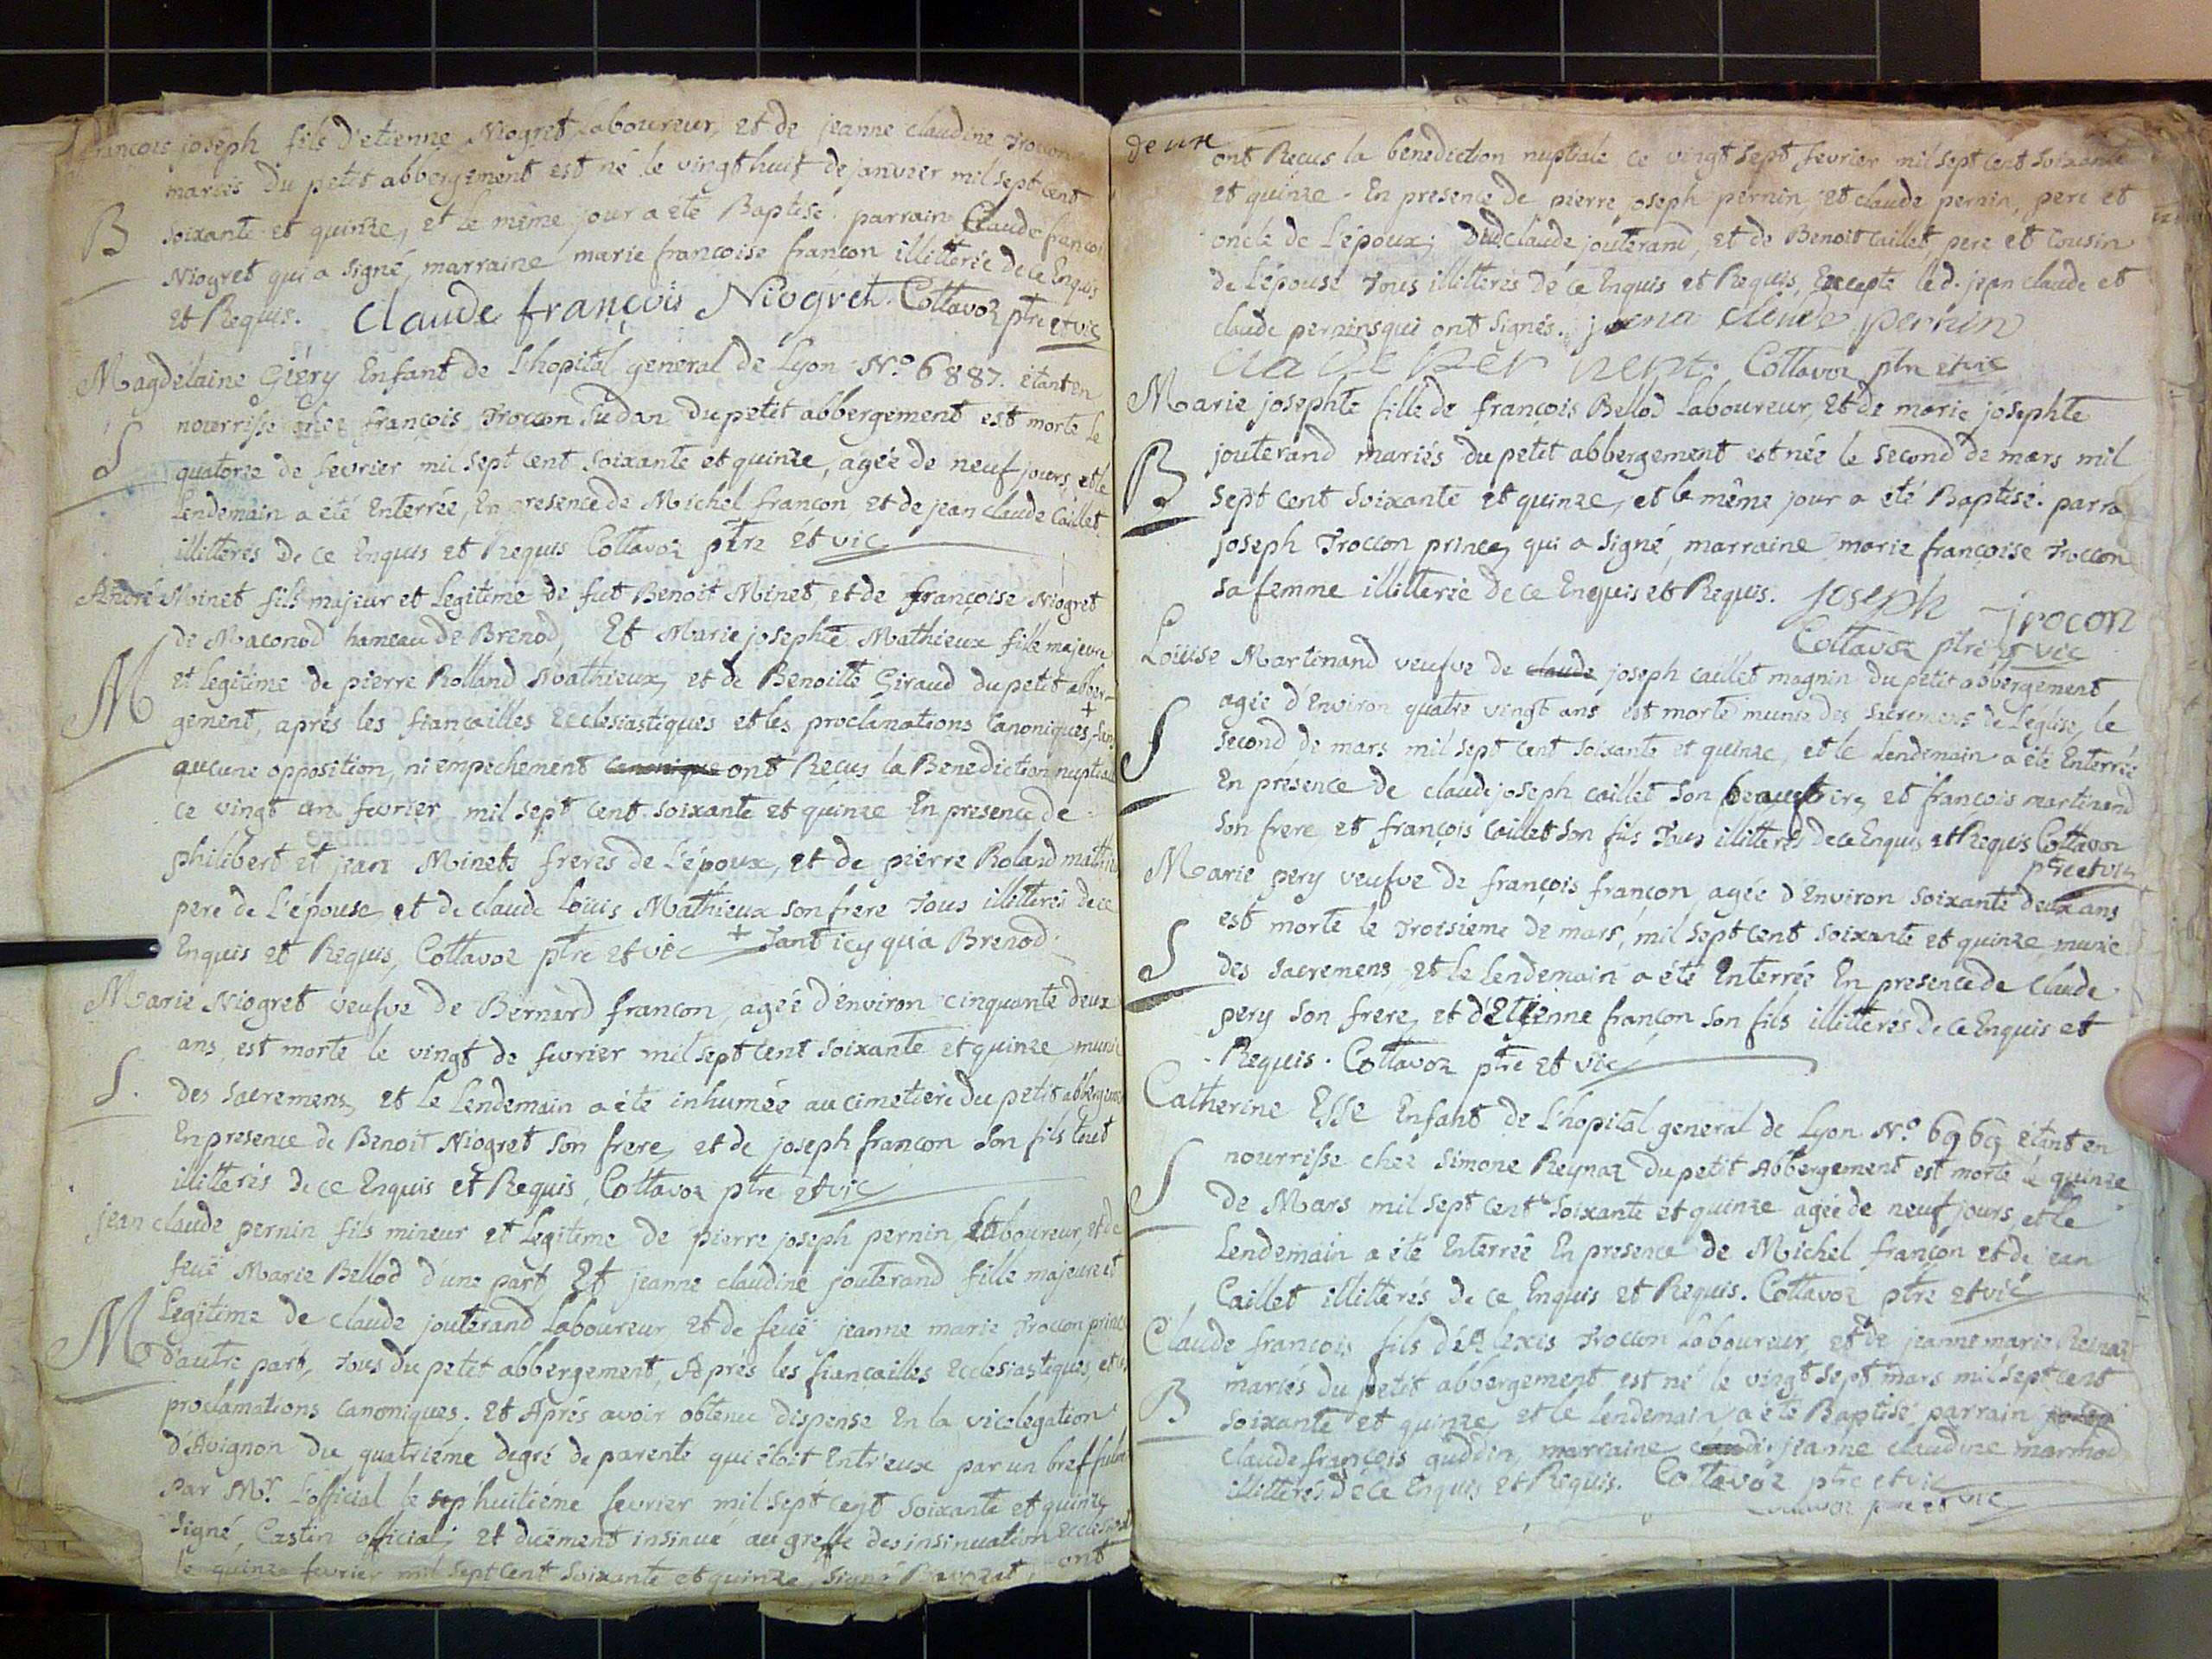 françois joseph fils d'etienne Niogret Laboureur, et de jeanne claudine Troccon
mariés du petit abbergement est né le vingt huit de janvier mil sept cent
B
soixante et quinze, et le même jour a eté Baptisé. parrain Claude françois
Niogret qui a signé, marraine marie françoise françon illitterée de ce Enquis
et Requis. Claude françois Niogret. Cottavoz ptre et vic
Magdelaine Giéry Enfant de L'hopital general de Lyon N.º 6887. étant en
nourrisse chez françois Troccon Tudan du petit abbergement est morte le
S
quatorze de fevrier mil sept cent soixante et quinze, agée de neuf jours, et le
Lendemain a été Enterrée, En presence de Michel françon, et de jean claude Caillet
illitterés de ce Enquis et Requis Cottavoz ptre et vic
André Minet fils majeur et Legitime de fut Benoit Minet, et de françoise Niogret
de Maconod hameau de Brenod, Et Marie josephte Mathieux fille majeure
M
et legitime de pierre Rolland Mathieux, et de Benoitte Giraud du petit abber-
gement, aprés les fiançailles Ecclesiastiques et les proclamations Canoniques, + sans
aucune opposition, ni empechement canonique ont Recus la Benediction nuptiale
ce vingt un fevrier mil sept cent soixante et quinze En presence de
philibert et jean Minets freres de L'époux, et de pierre Roland mathieu
pere de L'épouse, et de claude Loüis Mathieux son frere Tous illitterés de ce
Enquis et Requis, Cottavoz ptre et vic + Tant icy qu'a Brenod.
Marie Niogret veufve de Bernard françon, agée d'environ cinquante deux
ans, est morte le vingt de fevrier mil sept cent soixante et quinze munie
S.
des sacremens, et Le Lendemain a été inhumée au cimetiere du petit abbergement
En presence de Benoit Niogret son frere, et de joseph françon son fils tout
illitterés de ce Enquis et Requis, Cottavoz ptre et vic
jean claude pernin fils mineur et Legitime de pierre joseph pernin, Laboureur, et de
feuë Marie Bellod d'une part, Et jeanne claudine jouterand fille majeure et
M
Legitime de claude jouterand Laboureur, et de feuë jeanne marie Troccon prince
d'autre part, Tous du petit abbergement, Aprés les fiançailles Ecclesiastiques, et les
proclamations canoniques. Et Aprés avoir obtenu dispense En la vicelegation
d'Avignon du quatriéme degré de parente qui étoit Entr'eux par un bref fulm
par Mr. L'official le sep huitiéme fevrier mil sept cent soixante et quinze,
signé, Castin official; et duëment insinué au greffe des insinuation Eccles
le quinze fevrier mil sept cent soixante et quinze, signé, ont
deux
ont Reçus la benediction nuptiale ce vingt sept fevrier mil sept cent soixante
et quinze. En presence de pierre joseph pernin, et claude pernin, pere et
oncle de L'époux; Dud. claude jouterand, et de Benoit Caillet, pere et Cousin
de L'épouse Tous illitterés de ce Enquis et Requis, Excepté led. jean claude et
claude pernins qui ont signés. jena claude pernin
claude per nent. Cottavoz ptre et vic
Marie josephte fille de françois Bellod Laboureur, et de marie josephte
jouterand mariés du petit abbergement est née le second de mars mil
B
sept cent soixante et quinze, et le même jour a été Baptisé. parra
joseph Troccon prince, qui a signé, marraine marie françoise Troccon
sa femme illitterée de ce Enquis et Requis. joseph trocon
Cottavoz ptre et vic
Loüise Martinand veufve de claude joseph caillet magnin du petit abbergement
agée d'Environ quatre vingt ans est morte munie des sacremens de L'église, le
S
second de mars mil sept cent soixante et quinze, et le Lendemain a été Enterrée
En présence de claude joseph caillet son beaufrere, et françois martinand
son frere et françois Caillet son fils Tous illitterés de ce Enquis et Requis Cottavoz
ptre et vic
Marie pery veufve de françois françon, agée d'Environ soixante deux ans
est morte le Troisiéme de mars, mil sept cent soixante et quinze, munie
S
des sacremens, et le Lendemain a été Enterrée En presence de Claude
pery son frere, et d'Etienne françon son fils illitterés de ce Enquis et
Requis. Cottavoz ptre et vic
Catherine Esse Enfant de L'hopital general de Lyon N.º 6969 étant en
nourrisse chez Simone Reynaz du petit Abbergement est morte le quinze
S
de Mars mil sept cent soixante et quinze agée de neuf jours, et le
Lendemain a été Enterrée En presence de Michel françon et de jean
Caillet illitterés de ce Enquis et Requis. Cottavoz ptre et vic
Claude françois fils d'Alexis Troccon Laboureur, et de jeanne marie Reinaz
mariés du petit abbergement est né le vingt sept mars mil sept cent
B
soixante et quinze, et le Lendemain a été Baptisé, parrain
Claude françois guddin, marraine jeanne claudine marmod
illitterés de ce Enquis et Requis. Cottavoz ptre et vic
Cottavoz ptre et vic